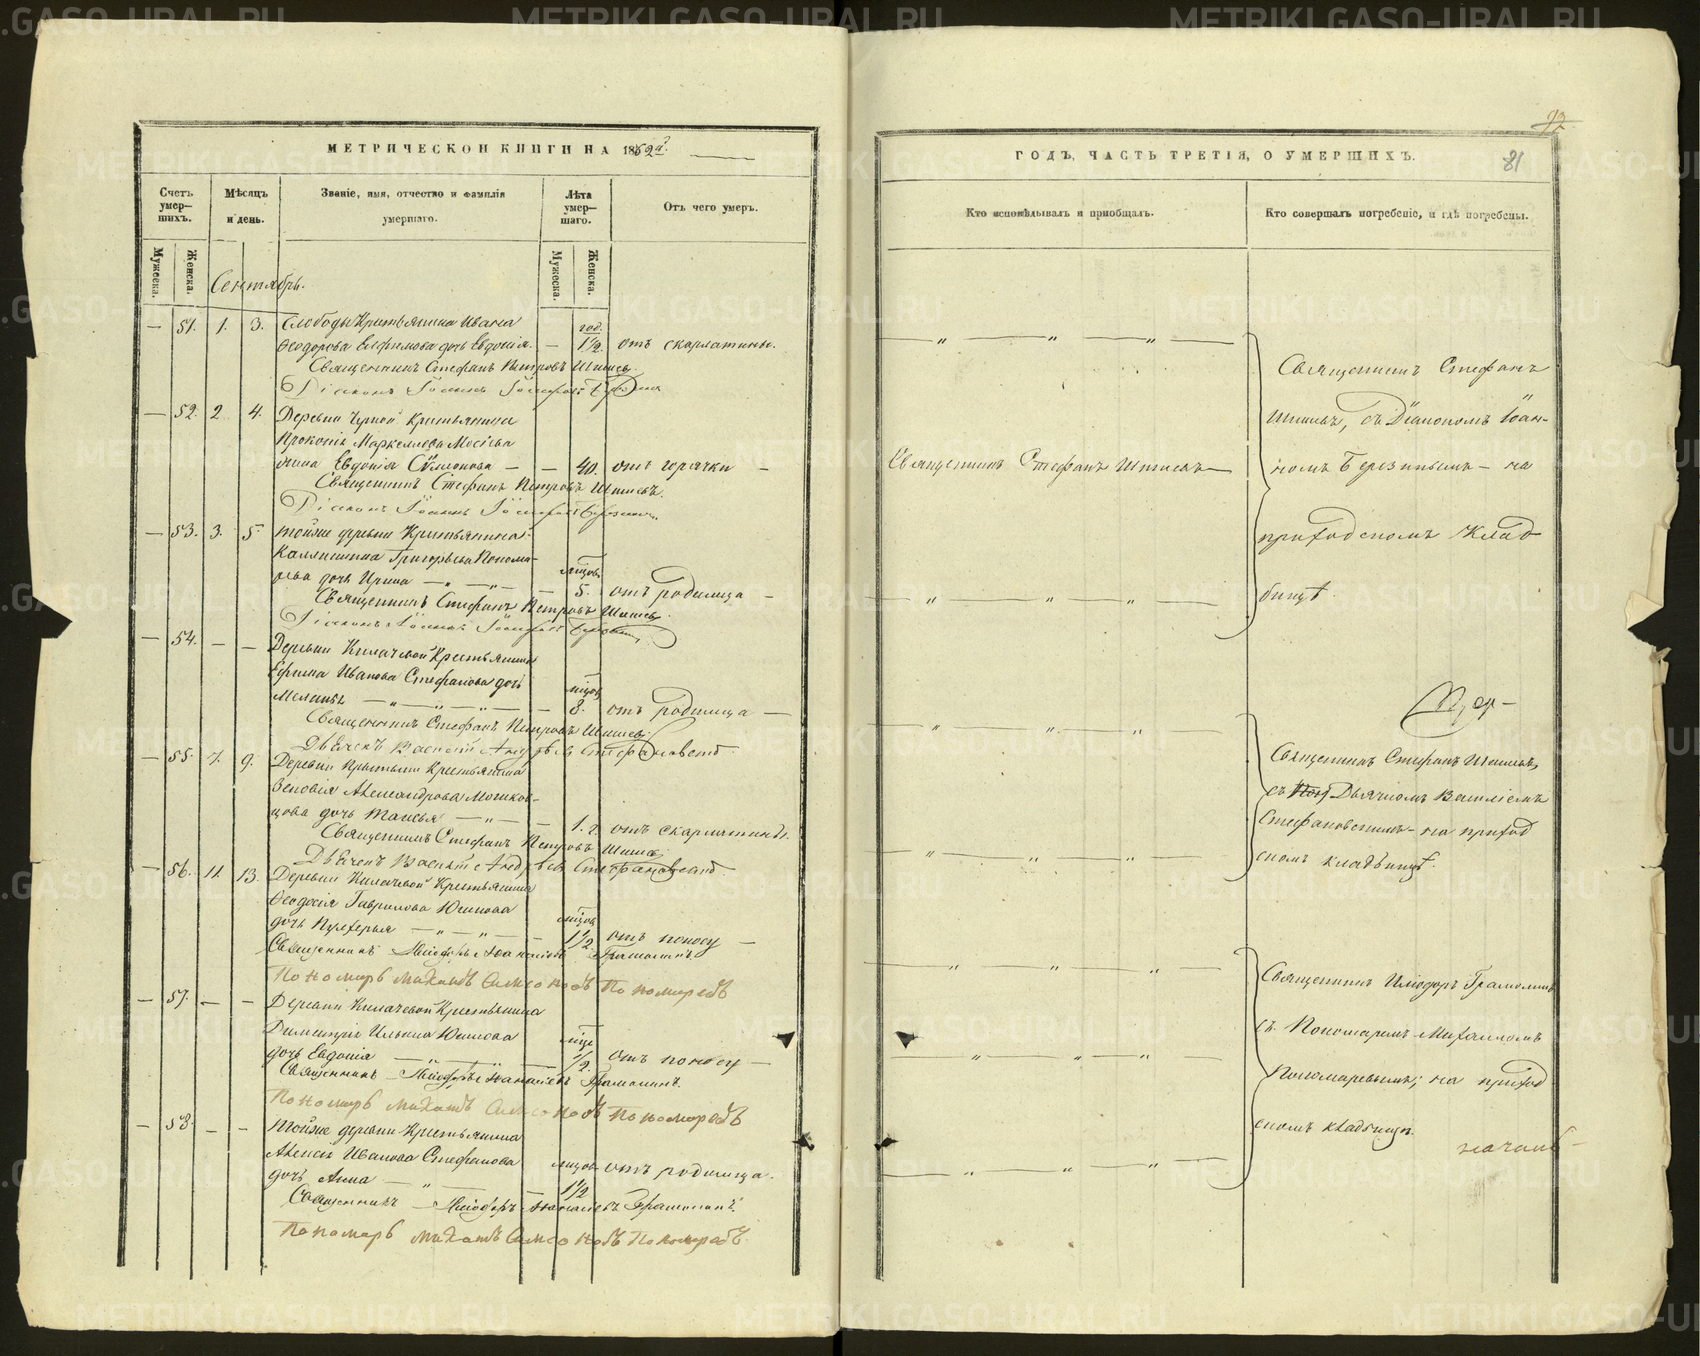 МЕТРИЧЕСКОЙ КНИГИ НА 1862й.
Счетъ умер-шихъ.
Мѣсяцъ и день.
Званіе, имя, отчество и фамилія умершаго.
Лѣта умер-шаго.
Отъ чего умеръ.
Мужеска. Женска. Мужеска. Женска.
Сентябрь.
— 51. 1. 3. Слободы Крестьянина Ивана
Ѳеодорова Ефимова дочь Евдокія. — год. 1½ отъ скарлатины.
Священникъ Стефанъ Петровъ Шишевъ.
Діаконъ Іоаннъ
— 52. 2. 4. Деревни Чурной Крестьянина
Прокопія Маркеллова Мосіева
жена Евдокія Сѵмеонова — — 40. отъ горячки —
Священникъ Стефанъ Петровъ Шишевъ.
Діаконъ Іоаннъ
— 53. 3. 5. тойже деревни Крестьянина
Каллиника Григорьева Понома-
рева дочь Ирина — „ — „ — мѣцовъ 5. отъ родимца —
Священникъ Стефанъ Петровъ Шишевъ.
Діаконъ Іоаннъ
— 54. — — Деревни Килачевой Крестьянина
Ефима Иванова Стефанова дочь
Меланья — „ — „ — „ — мѣцовъ 8. отъ родимца —
Священникъ Стефанъ Петровъ Шишевъ.
Дьячекъ Василій Андреевъ Стефановскій.
— 55. 7. 9. Деревни Крестьянина
Зеновія Александрова
дочь Таисья — „ — — 1. г. отъ скарлатины.
Священникъ Стефанъ Петровъ Шишевъ
Дьячекъ Василій Андреевъ Стефановскій.
— 56. 11. 13. Деревни Килачевой Крестьянина
Ѳеодосія Гаврилова Юшкова
дочь Пулхерья — „ — „ — мѣцовъ 1½. отъ поносу —
Священникъ Исидоръ Грамолинъ.
Пономарь Михаилъ Симеоновъ Пономаревъ
— 57. — — Деревни Килачевой Крестьянина
Димитрія Ильина Юшкова
дочь Евдокія — „ — „ — мѣце ½. отъ поносу —
Священникъ Исидоръ Грамолинъ.
Пономарь Михаилъ Симеоновъ Пономаревъ
— 58. — — Тойже деревни Крестьянина
Алексія Иванова Стефанова
дочь Анна — „ — — мѣцовъ 1½ отъ родимца.
Священникъ Исидоръ Грамолинъ.
Пономарь Михаилъ Симеоновъ Пономаревъ.
92
ГОДЪ, ЧАСТЬ ТРЕТІЯ, О УМЕРШИХЪ.
81
Кто исповѣдывалъ и пріобщалъ.
Кто совершалъ погребеніе, и гдѣ погребены.
Священникъ Стефанъ Шишевъ —
Священникъ Стефанъ
Шишевъ, съ Діакономъ Іоан-
номъ Березинымъ — на
приходскомъ Клад-
бищѣ.
Священникъ Стефанъ Шишевъ,
съ Дьячкомъ Василіемъ
Стефановскимъ — на приход
скомъ кладбищѣ.
Священникъ Исидоръ Грамолинъ
съ Пономаремъ Михаиломъ
Пономаревымъ; на приход
скомъ кладбищѣ.
METRIKI.GASO-URAL.RU